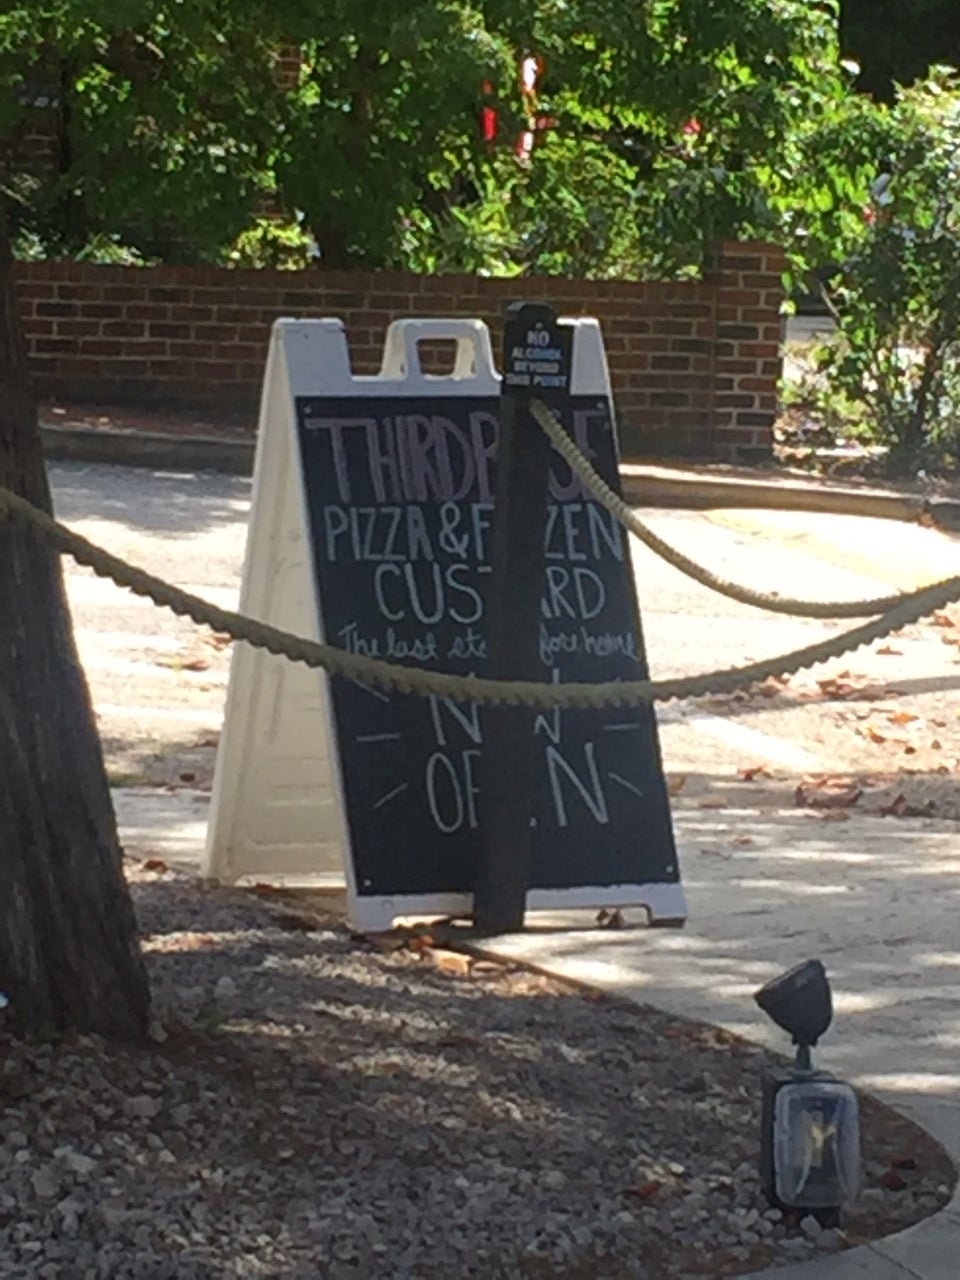 NO
ALCOHOL
BEYOND
THIS POINT
THIRDBASE
PIZZA & FROZEN
CUSTARD
The last stop before home
NOW
OPEN